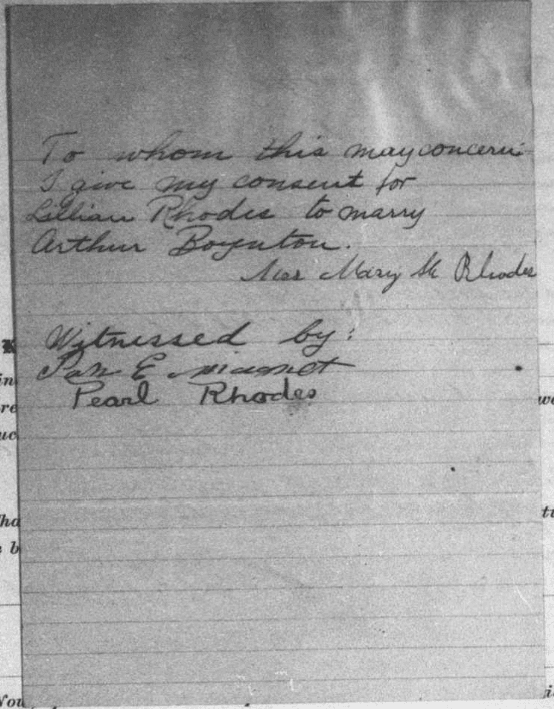 To whom this may concern:
I give my consent for
Lillian Rhodes to marry
Arthur Boynton.
Mrs Mary M Rhodes
Witnessed by:
E
Pearl Rhodes